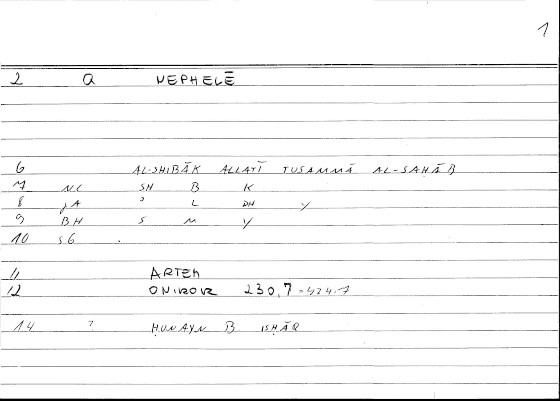 1
2 a NEPHELĒ
6 AL-SHIBĀK ALLATĪ TUSAMMĀ AL-SAḤĀB
7 NC SH B K
8 JA ʾ L DH Y
9 BH S M Y
10 SG .
11 ARTEM
12 ONIROK 230,7 = 424.7
14 ? ḤUNAYN B ISḤĀQ